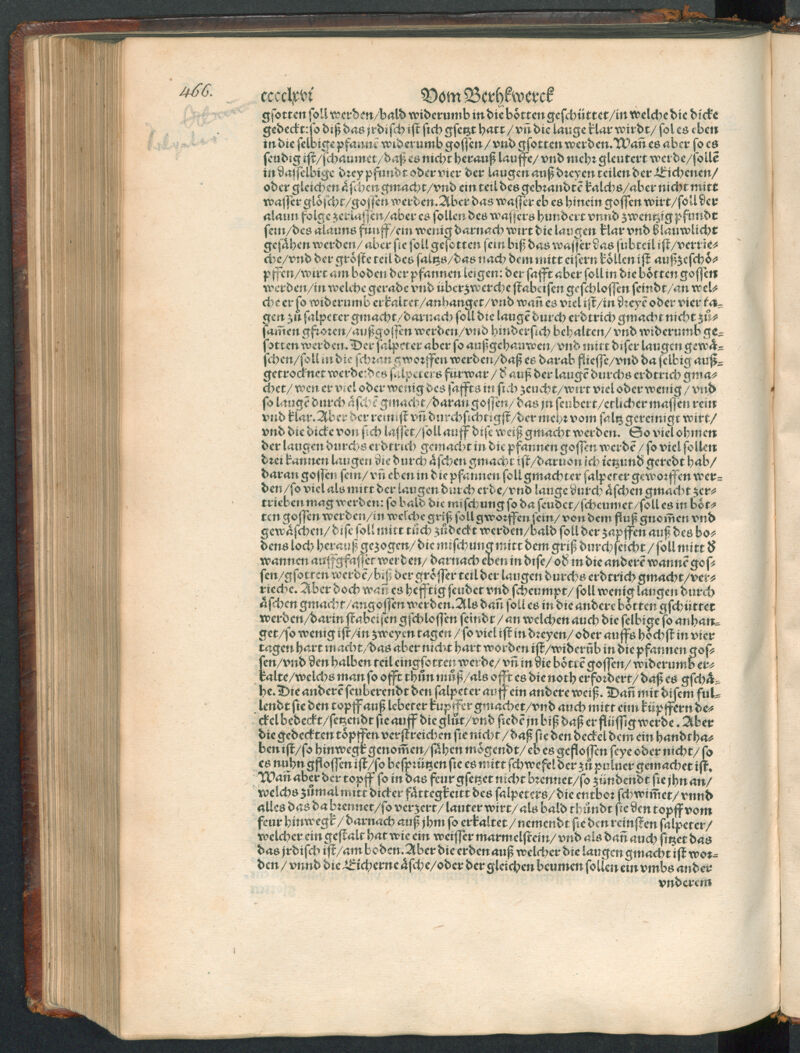 466.
cccclxvi Vom Berckwerck
gsotten soll werden/bald widerumb in die bötten geschüttet/in welche die dicke
gedeckt:so diß das jrdisch ist sich gsetzt hatt/vñ die lauge klar wirdt/sol es eben
in die selbige pfanne widerumb gossen/vnd gsotten werden. Wañ es aber so es
seudig ist/schaumet/daß es nicht herauß lauffe/vnd mehr gleutert werde/sollē
in dasselbige drey pfundt oder vier der laugen auß dreyen teilen der Eichenen/
oder gleichen åschen gmacht/vnd ein teil des gebrandtē kalchs/aber nicht mitt
wasser glöscht/gossen werden. Aber das wasser eb es hinein gossen wirt/soll der
alaun folge zerlassen/aber es sollen des wassers hundert vnnd zwentzig pfundt
sein/des alauns fünff/ein wenig darnach wirt die laugen klar vnd blauwlicht
gesåhen werden/aber sie soll gesotten sein biß das wasser das subteil ist/verrie⸗
che/vnd der gröste teil des saltzs/das nach dem mitt eisern köllen ist außzeschö⸗
pffen/wirt am boden der pfannen leigen: der safft aber soll in die bötten gossen
werden/in welche gerade vnd überzwerche stabeisen geschlossen seindt/an wel⸗
che er so widerumb erkaltet/anhanget/vnd wañ es viel ist/in dreyē oder vier ta⸗
gen zů salpeter gmacht/darnach soll die laugē durch erdtrich gmacht nicht zů⸗
samen gfroren/außgossen werden/vnd hindersich behalten/vnd widerumb ge⸗
sotten werden. Der salpeter aber so außgehauwen/vnd mitt diser laugen gewå⸗
schen/soll in die schran gworffen werden/daß es darab fliesse/vnd da selbig auß⸗
getrocknet werde:des salpeters fürwar/d auß der laugē durchs erdtrich gma⸗
chet/wen er viel oder wenig des saffts in sich zeucht/wirt viel oder wenig/vnd
so laugē durch åschē gmacht/daran gossen/das jn seubert/etlicher massen rein
vnd klar. Aber der reinist vñ durchsichtigst/der mehr vom saltz gereinigt wirt/
vnd die dicke von sich lasset/soll auff dise weiß gmacht werden. So viel ohmen
der laugen durchs erdtrich gemacht in die pfannen gossen werdē/so viel sollen
drei kannen laugen die durch åschen gmacht ist/daruon ich ietzund geredt hab/
daran gossen sein/vñ eben in die pfannen soll gmachter salpeter geworffen wer⸗
den/so viel als mitt der laugen durch erde/vnd lauge durch åschen gmacht zer⸗
trieben mag werden: so bald die mischung so da seudet/scheumet/soll es in böt⸗
ten gossen werden/in welsche griß soll gworffen sein/von dem fluß gnom̃en vnd
gewåschen/dise soll mitt tůch zůdeckt werden/bald soll der zapffen auß des bo⸗
dens loch herauß gezogen/die mischung mitt dem griß durchseicht/soll mitt d
wannen auffgfasset werden/darnach eben in dise/od in die anderē wannē gos⸗
sen/gsotten werdē/biß der grösser teil der laugen durchs erdtrich gmacht/ver⸗
rieche. Aber doch wañ es hefftig seudet vnd scheumpt/soll wenig laugen durch
åschen gmacht/angossen werden. Als dañ soll es in die andere bötten gschüttet
werden/darin stabeisen gschlossen seindt/an welchen auch die selbige so anhan⸗
get/so wenig ist/in zweyen tagen/so viel ist in dreyen/oder auffs höchst in vier
tagen hart macht/das aber nicht hart worden ist/widerūb in die pfannen gos⸗
sen/vnd den halben teil eingsotten werde/vñ in die böttē gossen/widerumb er⸗
kalte/welchs man so offt thůn můß/als offt es die noth erfordert/daß es gschå⸗
he. Die anderē seuberendt den salpeter auff ein andere weiß. Dañ mit disem ful⸗
lendt sie den topff auß lebeter kupffer gmachet/vnd auch mitt eim küpffern de⸗
ckel bedeckt/setzendt sie auff die glůt/vnd siedē jn biß daß er flüssig werde. Aber
die gedeckten töpffen verstreichen sie nicht/daß sie den deckel dem ein handtha⸗
ben ist/so hinwegk genom̃en/såhen mögendt/eb es geflossen seye oder nicht/so
es nuhn gflossen ist/so besprützen sie es mitt schwefel der zů puluer gemachet ist.
Wañ aber der topff so in das feur gsetzet nicht brennet/so zündendt sie jhn an/
welchs zůmal mitt dicker fåttegkeitt des salpeters/die entbor schwim̃et/vnnd
alles das da brennet/so verzert/lauter wirt/als bald thůndt sie den topff vom
feur hinwegk/darnach auß jhm so erkaltet/nemendt sie den reinsten salpeter/
welcher ein gestalt hat wie ein weisser marmelstein/vnd als dañ auch sitzet das
das jrdisch ist/am boden. Aber die erden auß welcher die laugen gmacht ist wor⸗
den/vnnd die Eicherne åsche/oder der gleichen beumen sollen ein vmbs ander
vnderem